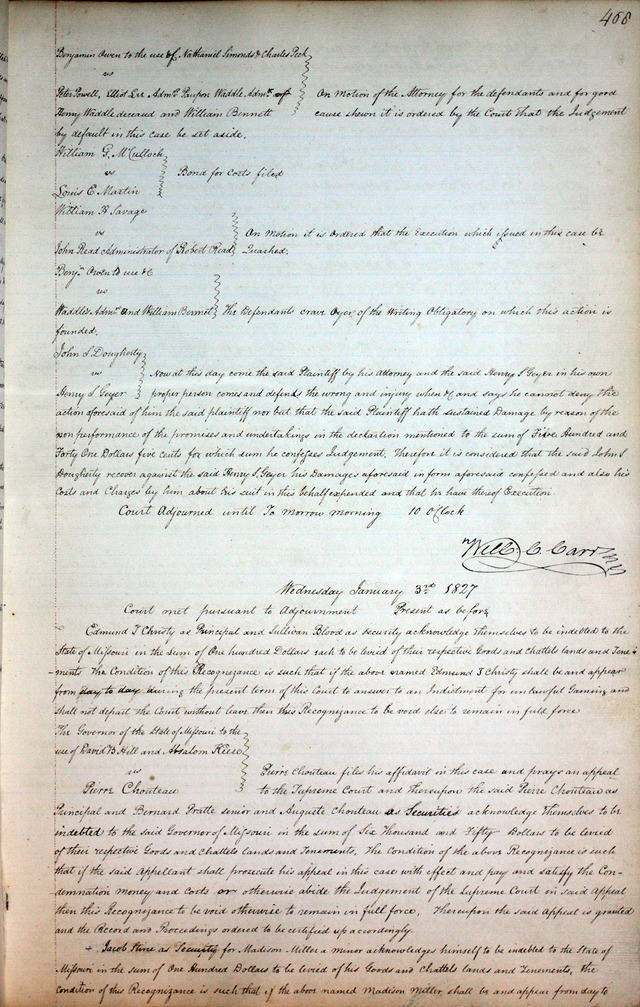 468
Benjamin Owen to the use of Nathaniel Simonds & Charles Peck
vs
Peter Powell, Elliot Lee Admr. Waddle Admr. of
On Motion of the Attorney for the defendants and for good
Henry Waddle deceased and William Bennett
cause shewn it is ordered by the Court that the Judgement
by default in this case be set aside.
William G. McCulloch
vs
Bond for Costs filed
Louis E. Martin
William H Savage
vs
On Motion it is Ordered that the Execution which issued in this case be
John Read Administrator of Robert Read
Quashed.
Benjn Owen to use &c
vs
Waddle's Admr and William Bennet
The Defendants crave Oyer of the Writing Obligatory on which this action is
founded.
John S. Dougherty
vs
Now at this day come the said Plaintiff by his Attorney and the said Henry S Geyer in his own
Henry S Geyer
proper person comes and defends the wrong and injury when &c and says he cannot deny the
action aforesaid of him the said plaintiff nor but that the said Plaintiff hath sustained Damage by reason of the
non performance of the promises and undertakings in the declaration mentioned to the sum of Five Hundred and
Forty One Dollars five cents for which sum he confesses Judgement. Therefore it is considered that the said John S
Dougherty recover against the said Henry S. Geyer his Damages aforesaid in form aforesaid confessed and also his
Costs and Charges by him about his suit in this behalf expended and that he have thereof Execution
Court Adjourned until To Morrow morning 10 OClock
Will. C. Carr
Wednesday January 3rd 1827
Court met pursuant to Adjournment Present as before
Edmund T Christy as Principal and Sullivan Blood as security acknowledge themselves to be indebted to the
State of Missouri in the Sum of One hundred Dollars each to be levied of their respective Goods and chattels lands and Tene-
ments The Condition of this Recognizance is such that if the above named Edmund T Christy shall be and appear
from day to day during the present term of this Court to answer to an Indictment for unlawful Gaming and
shall not depart the Court without leave then this Recognizance to be void else to remain in full force
The Governor of the State of Missouri to the
use of David B. Hill and Absalom Keese
vs
Pierre Chouteau files his affidavit in this case and prays an appeal
Pierre Chouteau
to the Supreme Court and thereupon the said Pierre Chouteau as
Principal and Bernard Pratte senior and Auguste Chouteau as Securities acknowledge themselves to be
indebted to the said Governor of Missouri in the sum of Six Thousand and Fifty Dollars to be levied
of their respective Goods and chattels lands and Tenements. The Condition of the above Recognizance is such
that if the said Appellant shall prosecute his appeal in this case with effect and pay and satisfy the Con-
demnation money and costs or otherwise abide the Judgement of the Supreme Court in said Appeal
then this Recognizance to be void otherwise to remain in full force. Thereupon the said Appeal is granted
and the Record and Proceedings ordered to be certified up accordingly.
Jacob Hine as Security for Madison Miller a minor acknowledges himself to be indebted to the State of
Missouri in the sum of One Hundred Dollars to be levied of his Goods and Chattels lands and Tenements, the
Condition of this Recognizance is such that if the above named Madison Miller shall be and appear from day to